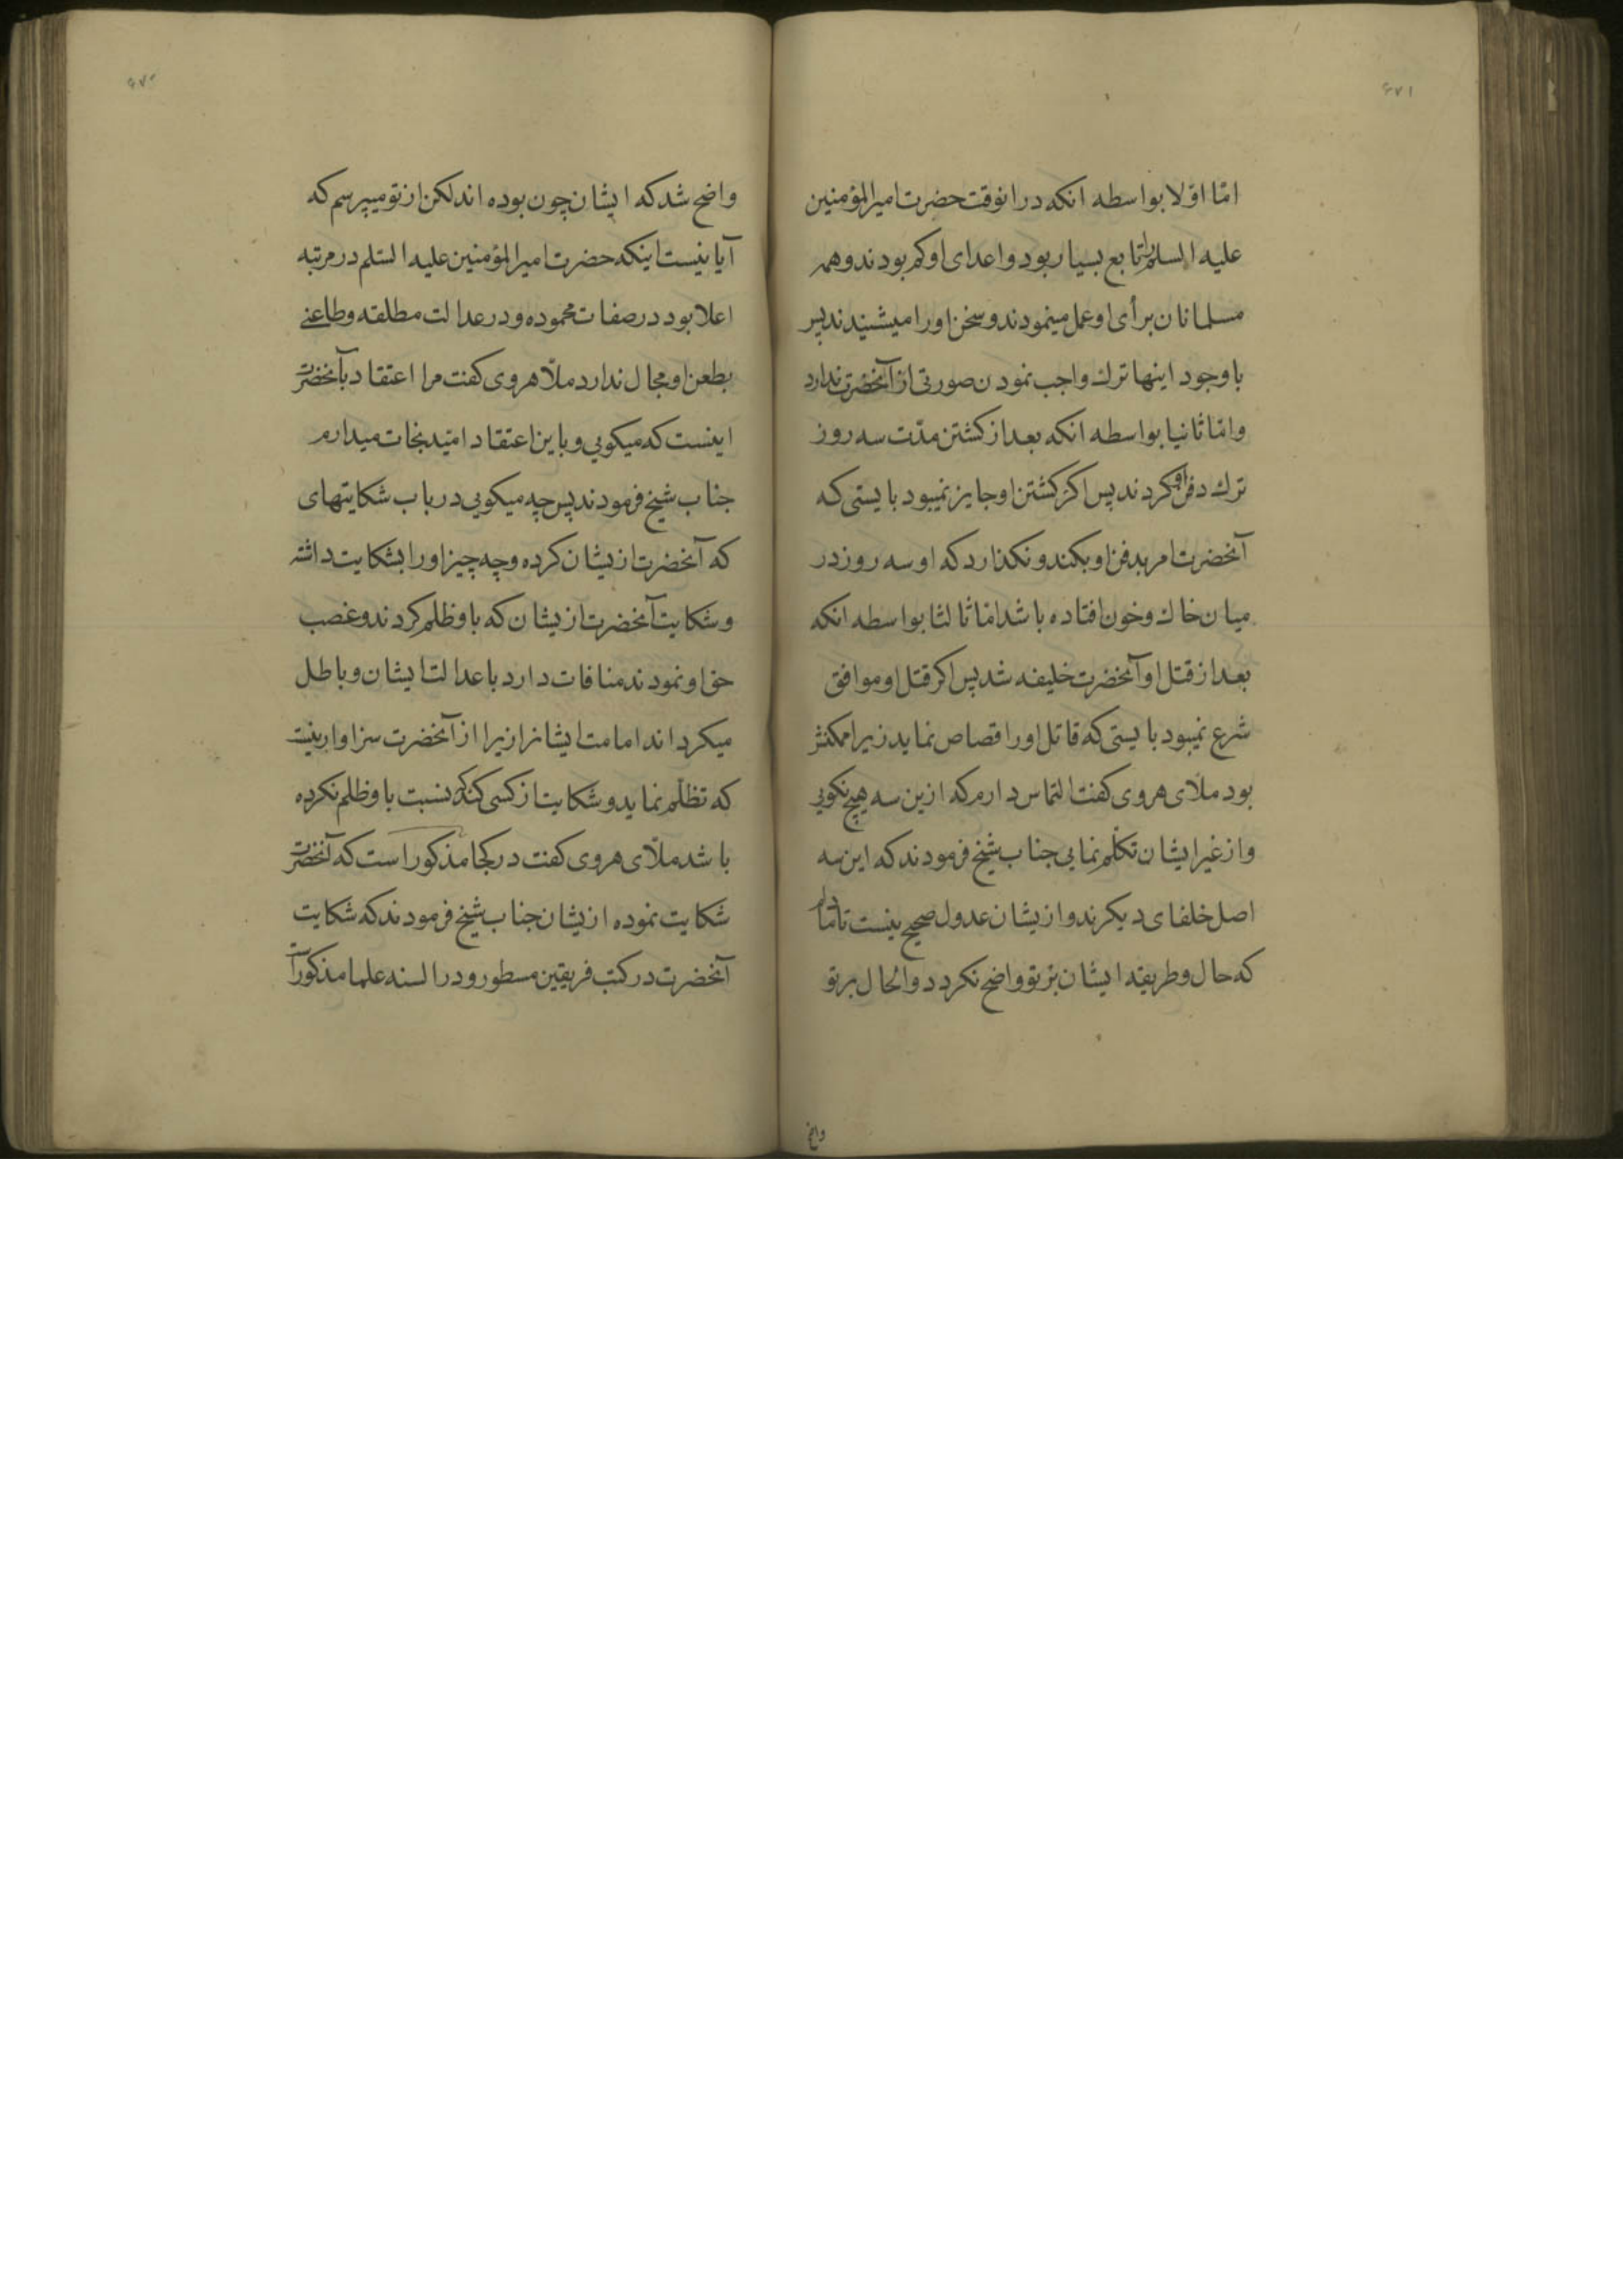 ۶۷۱
امّا اوّلا بواسطه انکه درانوقت حضرت امیرالمؤمنین
علیه السلم را تابع بسیار بود و اعدای او کم بودند و همه
مسلمانان برأی او عمل مینمودند و سخن او را میشنیدند پس
با وجود اینها ترك واجب نمودن صورتی از آنحضرت ندارد
و امّا ثانیا بواسطه انکه بعد از کشتن مدّت سه روز
ترك دفن او کردند پس اکر کشتن او جایز نمیبود بایستی که
آنحضرت امر بدفن او بکند و نکذارد که او سه روز در
میان خاك و خون افتاده باشد امّا ثالثا بواسطه انکه
بعد از قتل او آنحضرت خلیفه شد پس اکر قتل او موافق
شرع نمیبود بایستی که قاتل او را قصاص نماید زیرا ممکنش
بود ملّای هروی کفت التماس دارم که ازین سه هیچ نکویی
و از غیر ایشان تکلّم نمایی جناب شیخ فرمودند که این سه
اصل خلفای دیکرند و ازیشان عدول صحیح نیست تا تمام
که حال و طریقه ایشان بر تو واضح نکردد و الحال بر تو
واضح
۶۷۲
واضح شد که ایشان چون بوده اند لکن از تو میپرسم که
آیا نیست اینکه حضرت امیرالمؤمنین علیه السّلم در مرتبه
اعلا بود در صفات محموده و در عدالت مطلقه و طاعنی
بطعن او مجال ندارد ملّا هروی کفت مرا اعتقاد بآنحضرت
اینست که میکویی و باین اعتقاد امّید نجات میدارم
جناب شیخ فرمودند پس چه میکویی در باب شکایتهای
که آنحضرت ازیشان کرده و چه چیز او را بشکایت داشته
و شکایت آنحضرت ازیشان که باو ظلم کردند و غصب
حق او نمودند منافات دارد با عدالت ایشان و باطل
میکرداند امامت ایشانرا زیرا از آنحضرت سزاوار نیست
که تظلّم نماید و شکایت از کسی کند که نسبت باو ظلم نکرده
باشد ملّای هروی کفت در کجا مذکور است که آنحضرت
شکایت نموده ازیشان جناب شیخ فرمودند که شکایت
آنحضرت در کتب فریقین مسطور و در السنه علما مذکور است